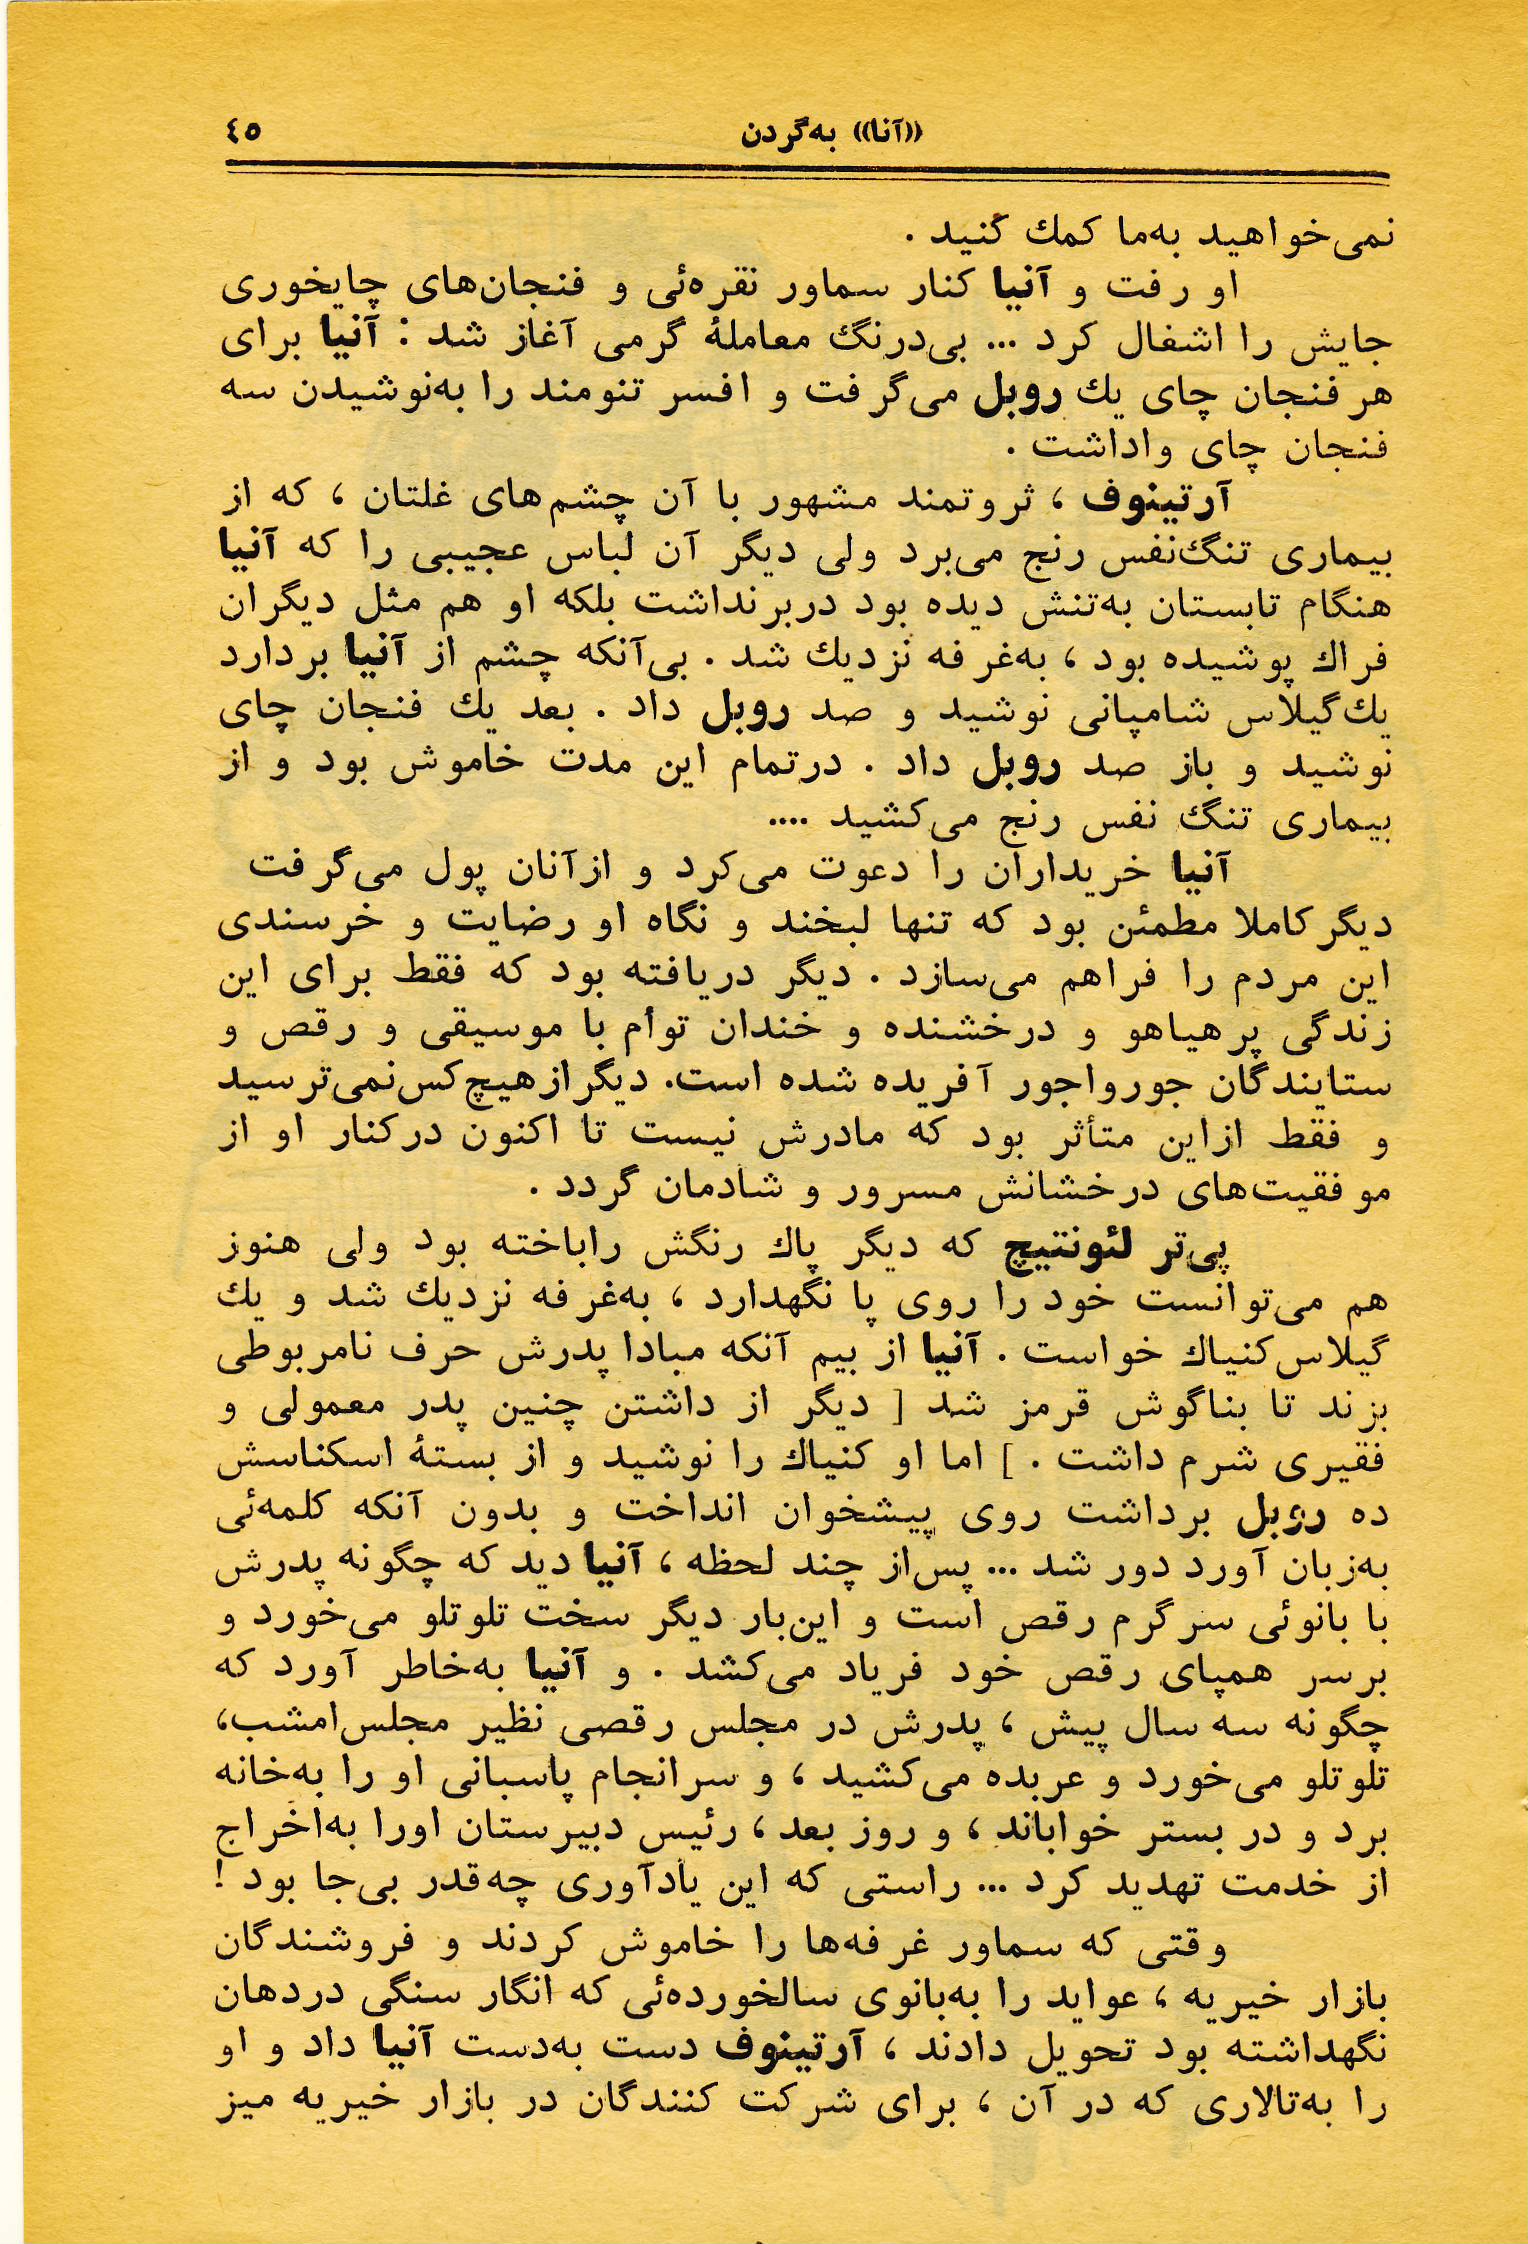 ((آنا)) به‌گردن ٤٥
نمی‌خواهید به‌ما كمك كنید .
او رفت و آنیا كنار سماور نقره‌ئی و فنجان‌های چایخوری
جایش را اشغال كرد ... بی‌درنگ معاملهٔ گرمی آغاز شد : آنیا برای
هر فنجان چای یك روبل می‌گرفت و افسر تنومند را به‌نوشیدن سه
فنجان چای واداشت .
آرتینوف ، ثروتمند مشهور با آن چشم‌های غلتان ، كه از
بیماری تنگ‌نفس رنج می‌برد ولی دیگر آن لباس عجیبی را كه آنیا
هنگام تابستان به‌تنش دیده بود دربرنداشت بلكه او هم مثل دیگران
فراك پوشیده بود ، به‌غرفه نزدیك شد . بی‌آنكه چشم از آنیا بردارد
یك‌گیلاس شامپانی نوشید و صد روبل داد . بعد یك فنجان چای
نوشید و باز صد روبل داد . درتمام این مدت خاموش بود و از
بیماری تنگ نفس رنج می‌كشید ....
آنیا خریداران را دعوت می‌كرد و ازآنان پول می‌گرفت
دیگر كاملا مطمئن بود كه تنها لبخند و نگاه او رضایت و خرسندی
این مردم را فراهم می‌سازد . دیگر دریافته بود كه فقط برای این
زندگی پرهیاهو و درخشنده و خندان توأم با موسیقی و رقص و
ستایندگان جورواجور آفریده شده است. دیگرازهیچ‌كس‌نمی‌ترسید
و فقط ازاین متأثر بود كه مادرش نیست تا اكنون دركنار او از
موفقیت‌های درخشانش مسرور و شادمان گردد .
پی‌تر لئونتیچ كه دیگر پاك رنگش راباخته بود ولی هنوز
هم می‌توانست خود را روی پا نگهدارد ، به‌غرفه نزدیك شد و یك
گیلاس‌كنیاك خواست . آنیا از بیم آنكه مبادا پدرش حرف نامربوطی
بزند تا بناگوش قرمز شد [ دیگر از داشتن چنین پدر معمولی و
فقیری شرم داشت . ] اما او كنیاك را نوشید و از بستهٔ اسكناسش
ده روبل برداشت روی پیشخوان انداخت و بدون آنكه كلمه‌ئی
به‌زبان آورد دور شد ... پس‌از چند لحظه ، آنیا دید كه چگونه پدرش
با بانوئی سرگرم رقص است و این‌بار دیگر سخت تلوتلو می‌خورد و
برسر همپای رقص خود فریاد می‌كشد . و آنیا به‌خاطر آورد كه
چگونه سه سال پیش ، پدرش در مجلس رقصی نظیر مجلس‌امشب،
تلوتلو می‌خورد و عربده می‌كشید ، و سرانجام پاسبانی او را به‌خانه
برد و در بستر خواباند ، و روز بعد ، رئیس دبیرستان اورا به‌اخراج
از خدمت تهدید كرد ... راستی كه این یادآوری چه‌قدر بی‌جا بود !
وقتی كه سماور غرفه‌ها را خاموش كردند و فروشندگان
بازار خیریه ، عواید را به‌بانوی سالخورده‌ئی كه انگار سنگی دردهان
نگهداشته بود تحویل دادند ، آرتینوف دست به‌دست آنیا داد و او
را به‌تالاری كه در آن ، برای شركت كنندگان در بازار خیریه میز